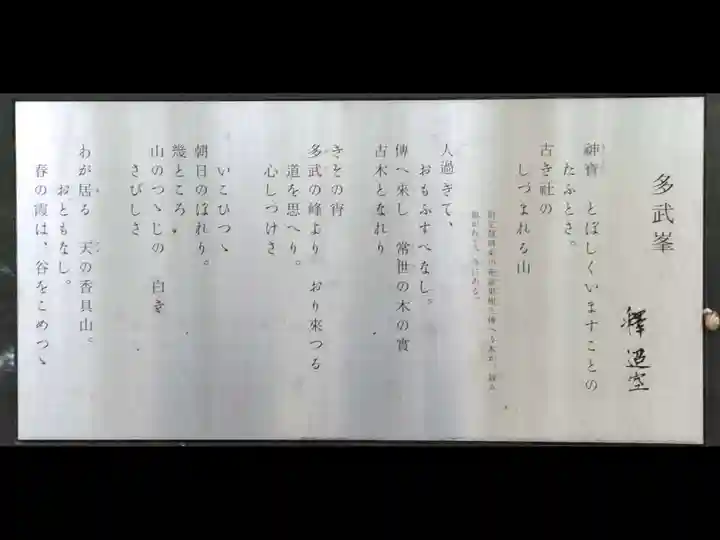 多武峯
釋 迢空
神寶 とぼしくいますことの
たふとさ。
古き社の
しづまれる山
人過ぎて、
おもふすべなし。
傳へ來し 常世の木の實
古木となれり
きその宵
多武の峰より おり來つる
道を思へり。
心しづけさ
いこひつゝ
朝日のぼれり。
幾ところ
山のつゝじの 白き
さびしさ
わが居る 天の香具山。
おともなし。
春の霞は、谷をこめつゝ